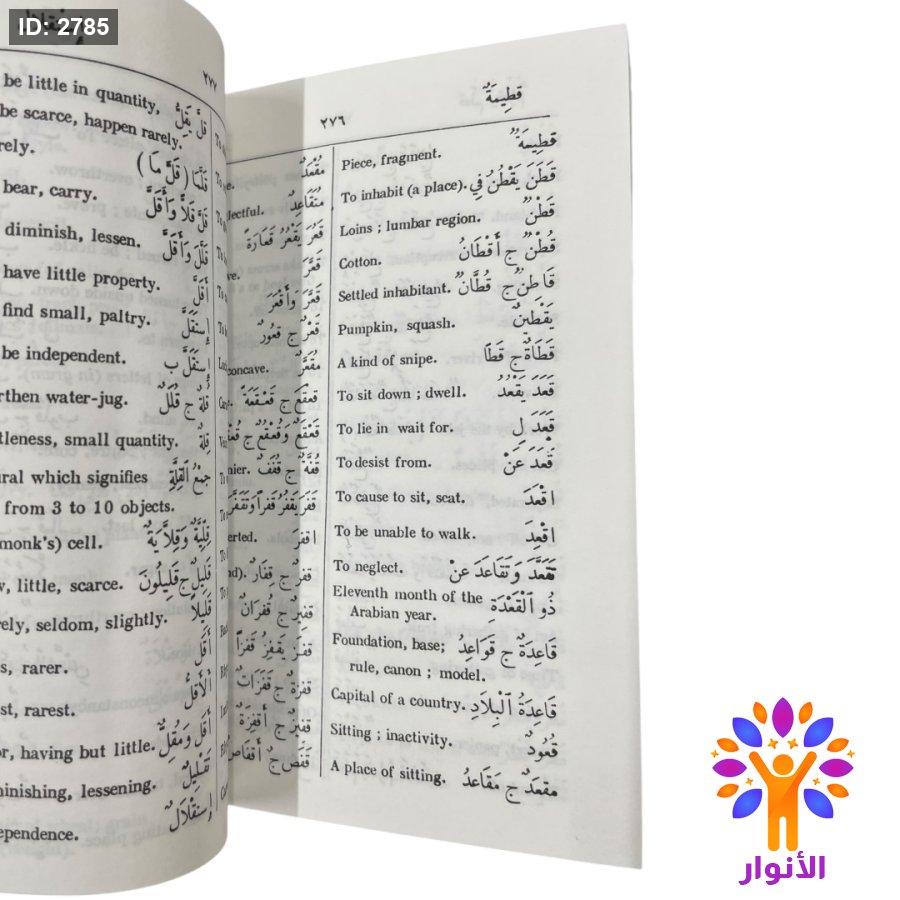 ID: 2785
٢٧٧
be little in quantity, قَلَّ يَقِلُّ
be scarce, happen rarely.
rely. قَلَّمَا ( قَلَّ مَا )
bear, carry. قَلَّ قَلًّا وَأَقَلَّ
diminish, lessen. قَلَّلَ وَأَقَلَّ
have little property. أَقَلَّ
find small, paltry. إِسْتَقَلَّ
be independent. إِسْتَقَلَّ ب
rthen water-jug. قُلَّةٌ ج قُلَلٌ
tleness, small quantity. قِلَّةٌ
ural which signifies جَمْعُ ٱلْقِلَّةِ
from 3 to 10 objects.
monk's) cell. قِلِّيَّةٌ وَقِلَّايَةٌ
w, little, scarce. قَلِيلٌ ج قَلِيلُونَ
ely, seldom, slightly. قَلِيلًا
s, rarer. أَقَلُّ
st, rarest. أَلْأَقَلُّ
or, having but little. أَقَلُّ وَمُقِلٌّ
minishing, lessening. تَقْلِيلٌ
ependence. إِسْتِقْلَالٌ
٢٧٦
قطِيمَةٌ
مَقْعَدٌ
lectful. مُتَقَاعِدٌ
قَعُرَ يَقْعُرُ قَعَارَةً
قَعَّرَ
قَعَّرَ وَأَقْعَرَ
قَعْرٌ ج قُعُورٌ
concave. مُقَعَّرٌ
قَعْقَعَ ج قَعْقَعَةٌ
nier. قُفَّةٌ ج قُفَفٌ
erted. اقفرَ
قفرٌ ج قفَارٌ
قفيزٌ ج قُفزَانٌ
قفزَ يَقفِزُ قفزًا
قفزةٌ ج قفزَاتٌ
قفيزٌ ج أَقفِزَةٌ
قَفَصٌ ج أَقفَاصٌ
Piece, fragment. قطِيمَةٌ
To inhabit (a place). قَطَنَ يَقْطُنُ فِي
Loins ; lumbar region. قَطَنٌ
Cotton. قُطْنٌ ج أَقْطَانٌ
Settled inhabitant. قَاطِنٌ ج قُطَّانٌ
Pumpkin, squash. يَقْطِينٌ
A kind of snipe. قَطَاةٌ ج قَطًا
To sit down ; dwell. قَعَدَ يَقْعُدُ
To lie in wait for. قَعَدَ لِ
To desist from. قَعَدَ عَنْ
To cause to sit, seat. اقْعَدَ
To be unable to walk. اقْعِدَ
To neglect. تَقَعَّدَ وَتَقَاعَدَ عَنْ
Eleventh month of the ذُو ٱلْقَعْدَةِ
Arabian year.
Foundation, base; قَاعِدَةٌ ج قَوَاعِدُ
rule, canon ; model.
Capital of a country. قَاعِدَةُ ٱلْبِلَادِ
Sitting ; inactivity. قُعُودٌ
A place of sitting. مقعَدٌ ج مَقَاعِدُ
الأنوار